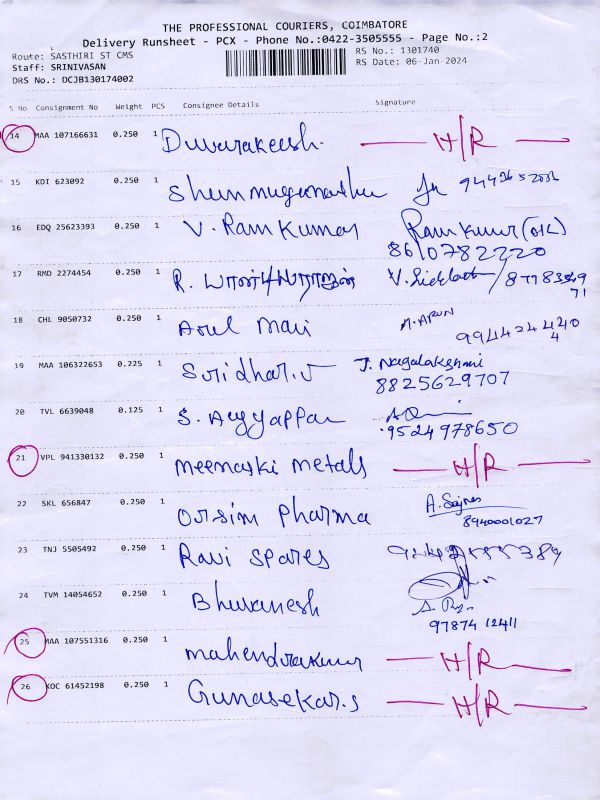 THE PROFESSIONAL COURIERS, COIMBATORE
Delivery Runsheet - PCX - Phone No.:0422-3505555 - Page No.:2
Route: SASTHIRI ST CMS RS No.: 1301740
Staff: SRINIVASAN RS Date: 06-Jan-2024
DRS No.: DCJB130174002
S No Consignment No Weight PCS Consignee Details Signature
14 MAA 107166631 0.250 1 Duvarakeesh. H/R
15 KDI 623092 0.250 1 Shunmuganathu
16 EDQ 25623393 0.250 1 V. Ram Kumar Ram Kumar
8610782220
17 RMD 2274454 0.250 1 R.
18 CHL 9050732 0.250 1 Arul Mari A. ARUN
19 MAA 106322653 0.225 1 Sridhar.v J. Nagalakshmi
8825629707
20 TVL 6639048 0.125 1 S. Aiyyappan
9524978650
21 VPL 941330132 0.250 1 meenaski metals H/R
22 SKL 656847 0.250 1 Orsim Pharma
8940001027
23 TNJ 5505492 0.250 1 Ravi Spares
24 TVM 14054652 0.250 1 Bhuvanesh
97874 12411
25 MAA 107551316 0.250 1 mahendrakumar H/R
26 KOC 61452198 0.250 1 Gunasekar.s H/R